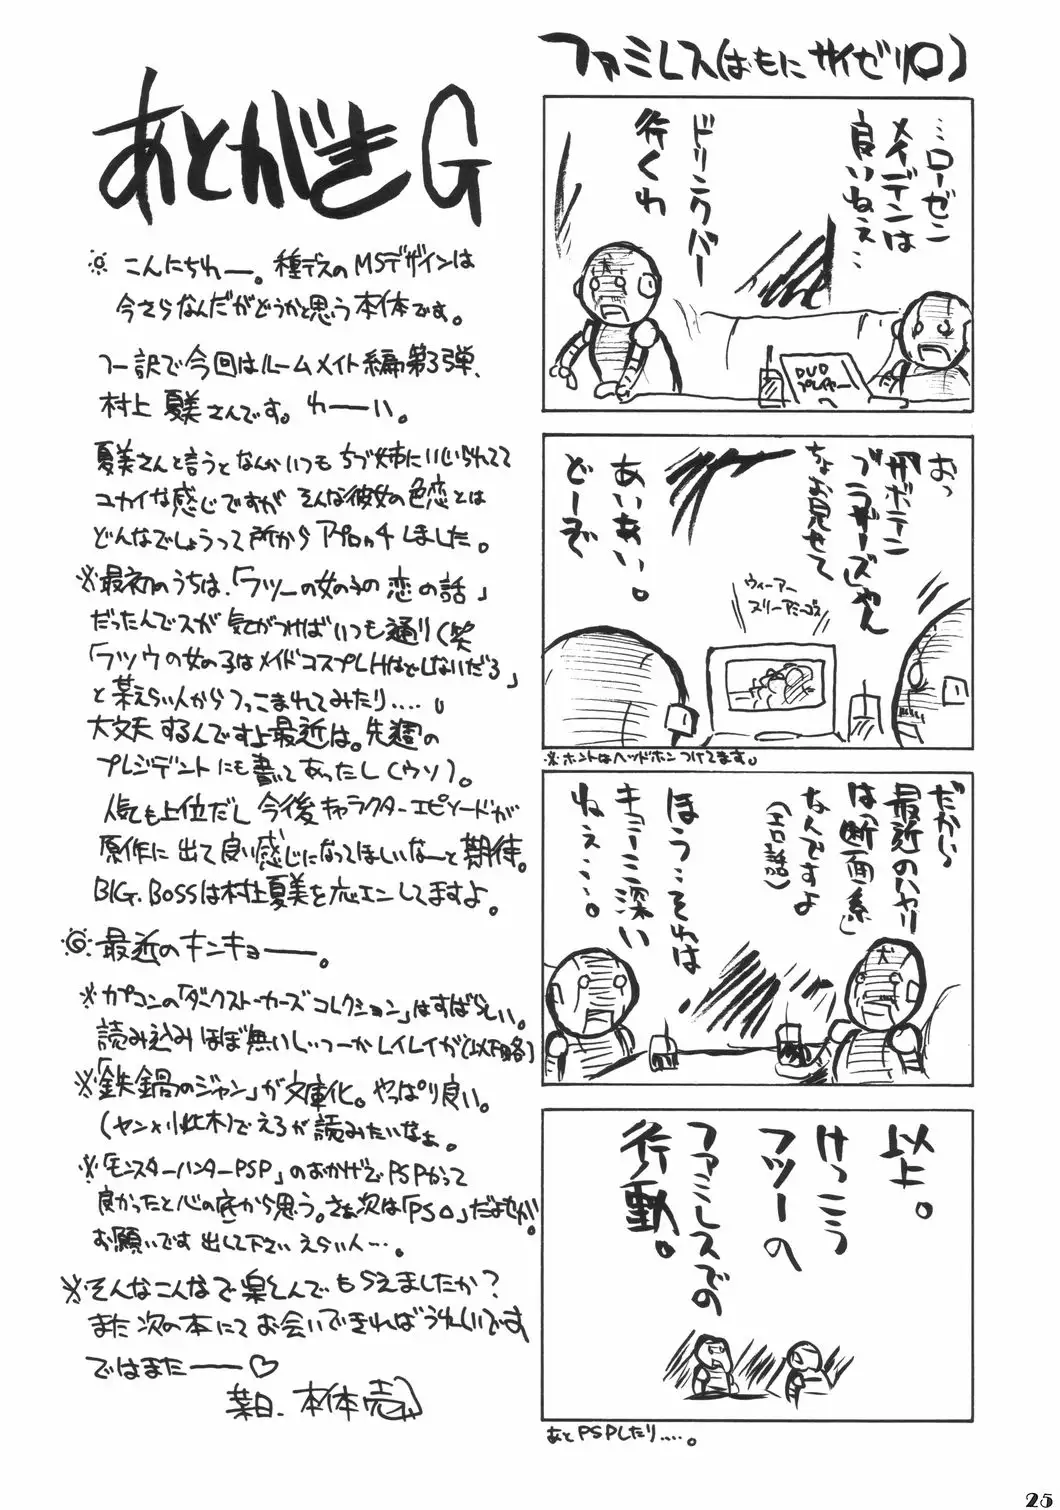 あとがきG
こんにちわー。種デスのMSデザインは
今さらなんだがどうかと思う本体です。
つー訳で今回はルームメイト編第3弾、
村上 夏美さんです。わーい。
夏美さんと言うとなんかいつも ちづ姉にいじられてて
ユカイな感じですが そんな彼女の色恋とは
どんなでしょうって所から アプローチしました。
※最初のうちは、「フツーの女の子の恋の話」
だったんでスが 気がつけばいつも通り(笑
「フツウの女の子はメイドコスプレHはしないだろ」
と某えらい人からつっこまれてみたり・・・・。
大丈夫 するんですよ最近は。先週の
プレジデントにも書いてあったし(ウソ)。
人気も上位だし 今後キャラクターエピソードが
原作に出て良い感じになってほしいなーと期待。
BIG.BOSSは村上夏美を応エンしてますよ。
◎最近のキンキョーーー。
※カプコンの「ダークストーカーズコレクション」はすばらしい。
読み込みほぼ無いしっつーかレイレイが(以下略)
※「鉄鍋のジャン」が文庫化。やっぱり良い。
(ヤン×小此木)でえろが読みたいなぁ。
※「モンスターハンターPSP」のおかげでPSPかって
良かったと心の底から思う。さぁ次は「PS△」だよセガ。
お願いです 出して下さい えらい人・・・。
※そんなこんなで楽しんでもらえましたか?
また次の本にてお会いできればうれしいです
ではまたーー♡
ファミレス(はもにサイゼリロ)
…ローゼン
メイデンは
良いねぇ…
ドリンクバー
行くわ
DVD
プレイヤー
おっ
『サボテン
ブラザーズ』やん
ちょお見せて
あいあい。
どーぞ
ウィーアー
スリーアミーゴス
※ホントはヘッドホンつけてます。
だから
最近のハヤリ
は「断面系」
なんですよ
(エロ話)
ほう…それは
キョーミ深い
ねぇ・・・・。
以上。
けっこう
フツーの
ファミレスでの
行動。
あとPSPしたり・・・・。
25